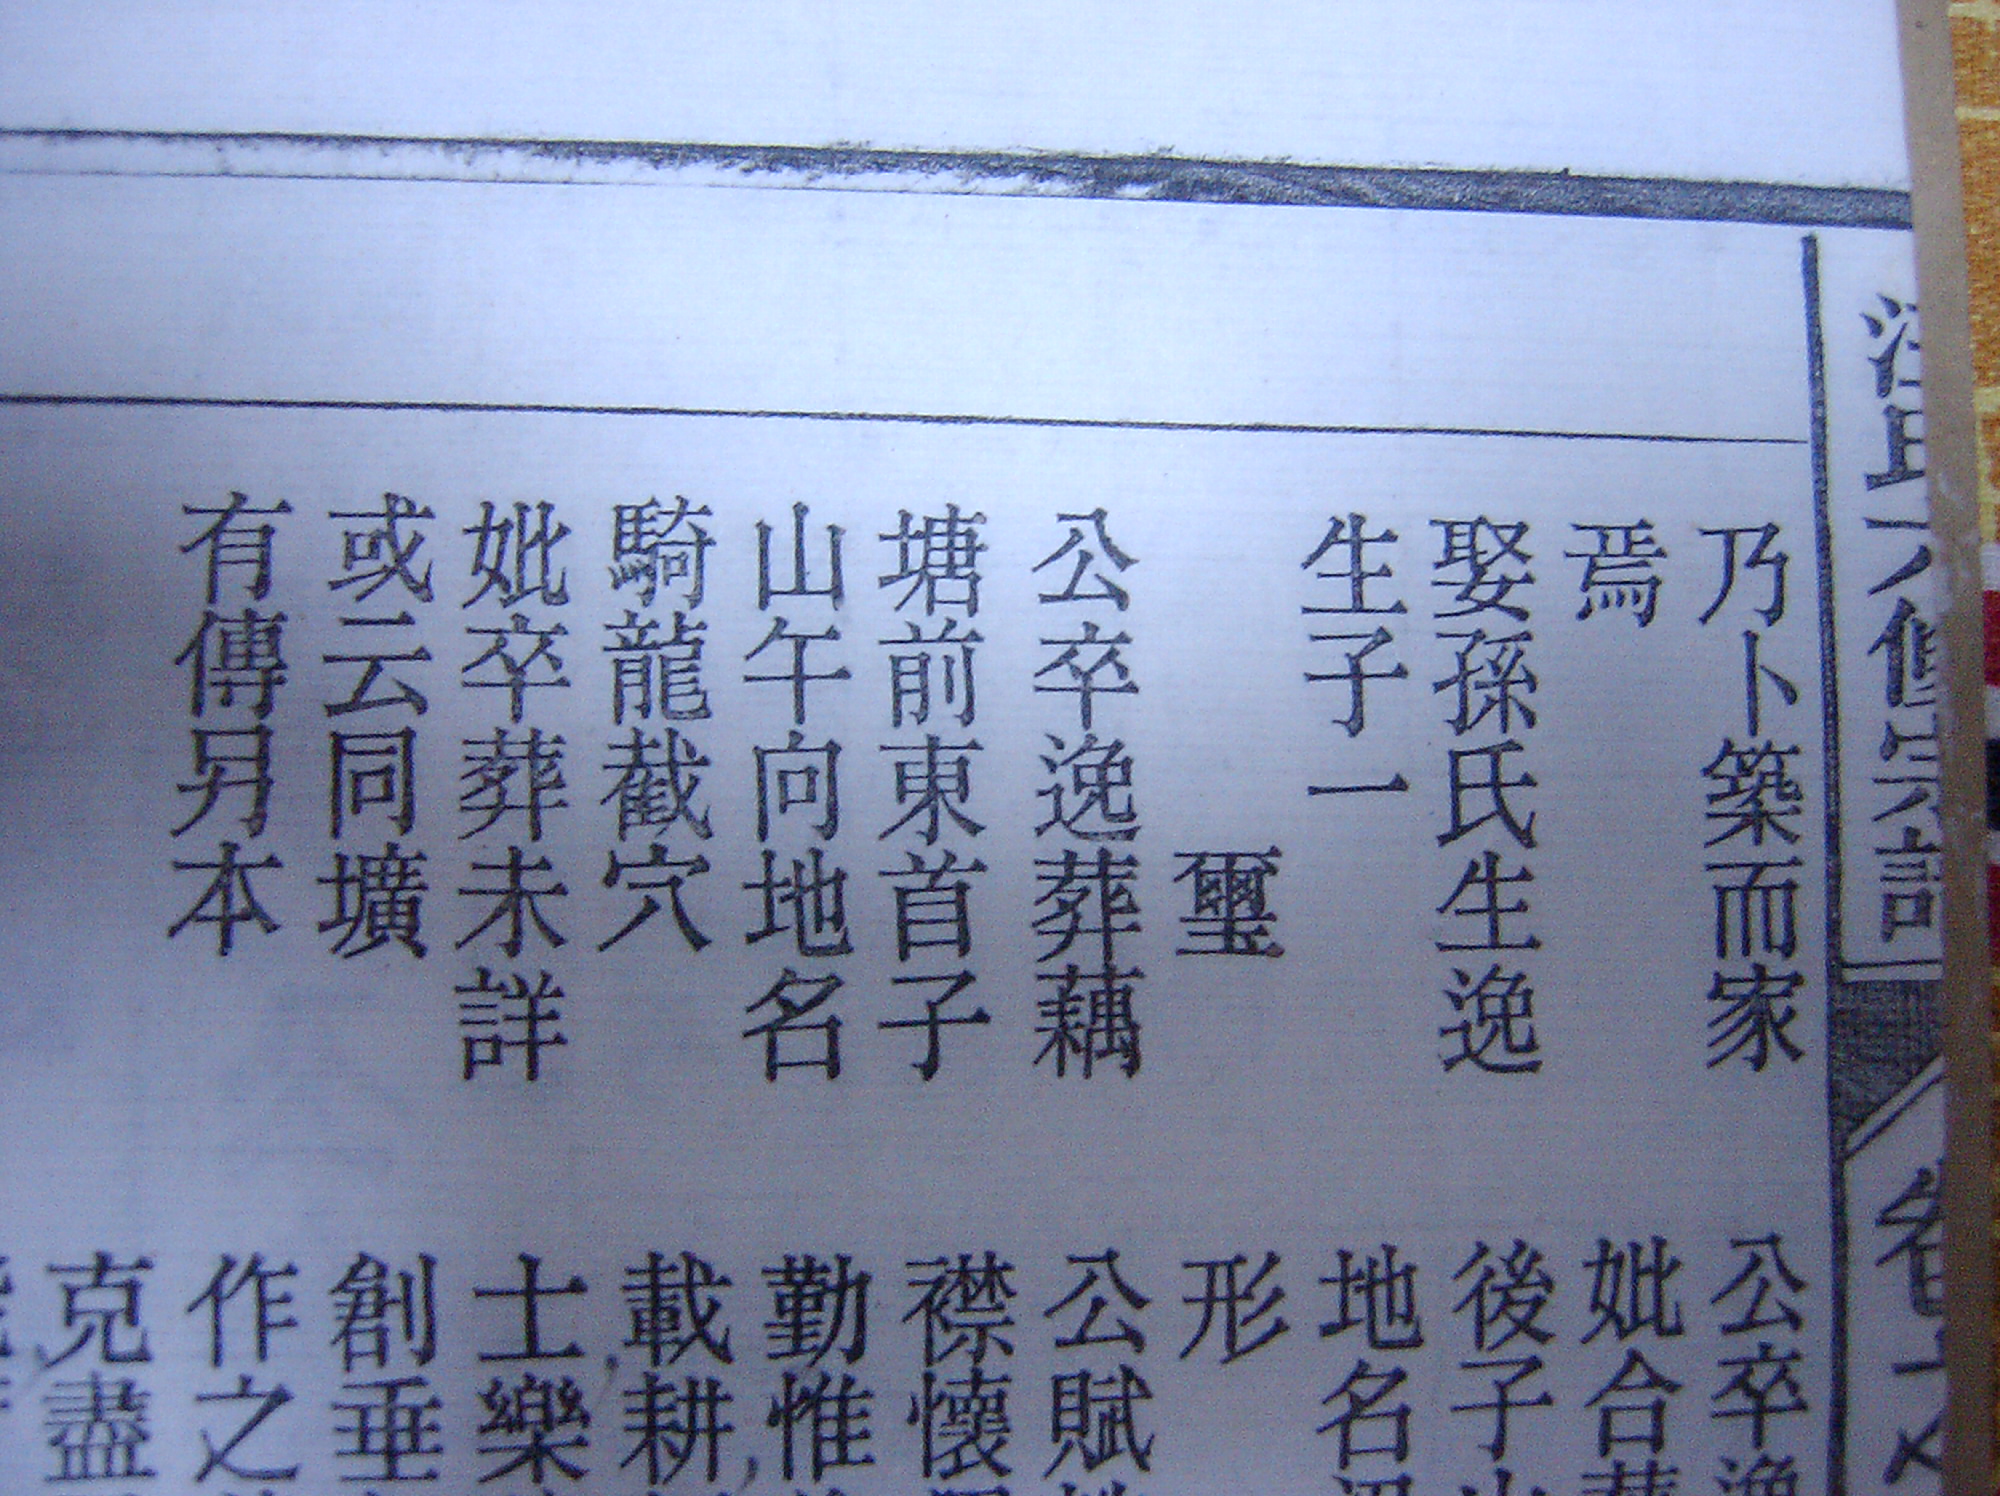 乃卜築而家
焉
娶孫氏生逸
生子一
璽
公卒逸葬藕
塘前東首子
山午向地名
騎龍截穴
妣卒葬未詳
或云同壙
有傳另本
公卒逸
妣合葬
後子山
地名
形
公賦性
襟懷
勤惟
載耕
士樂
創垂
作之
克盡